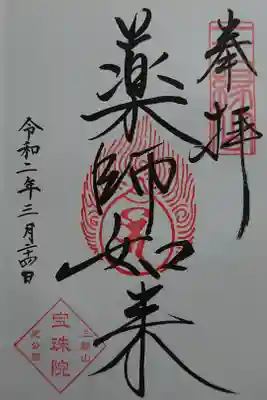 奉拝
薬師如来
令和二年三月二十四日
三縁山
宝珠院
芝公園